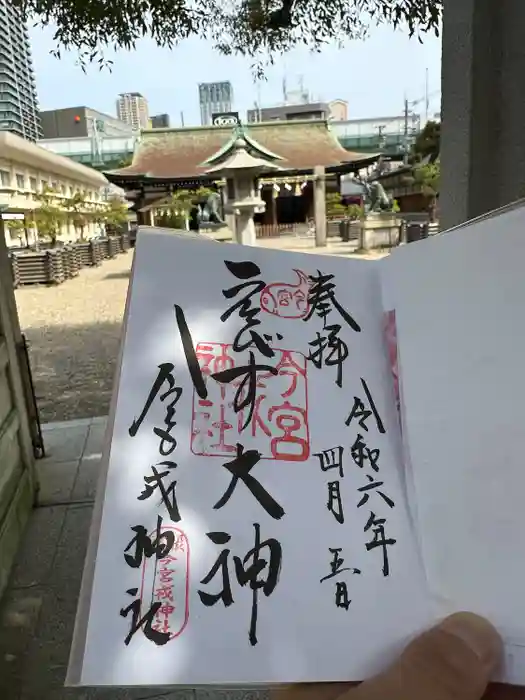 奉拝
令和六年四月五日
今宮
ゑびす大神
今宮戎神社
今宮戎神社
今宮戎神社